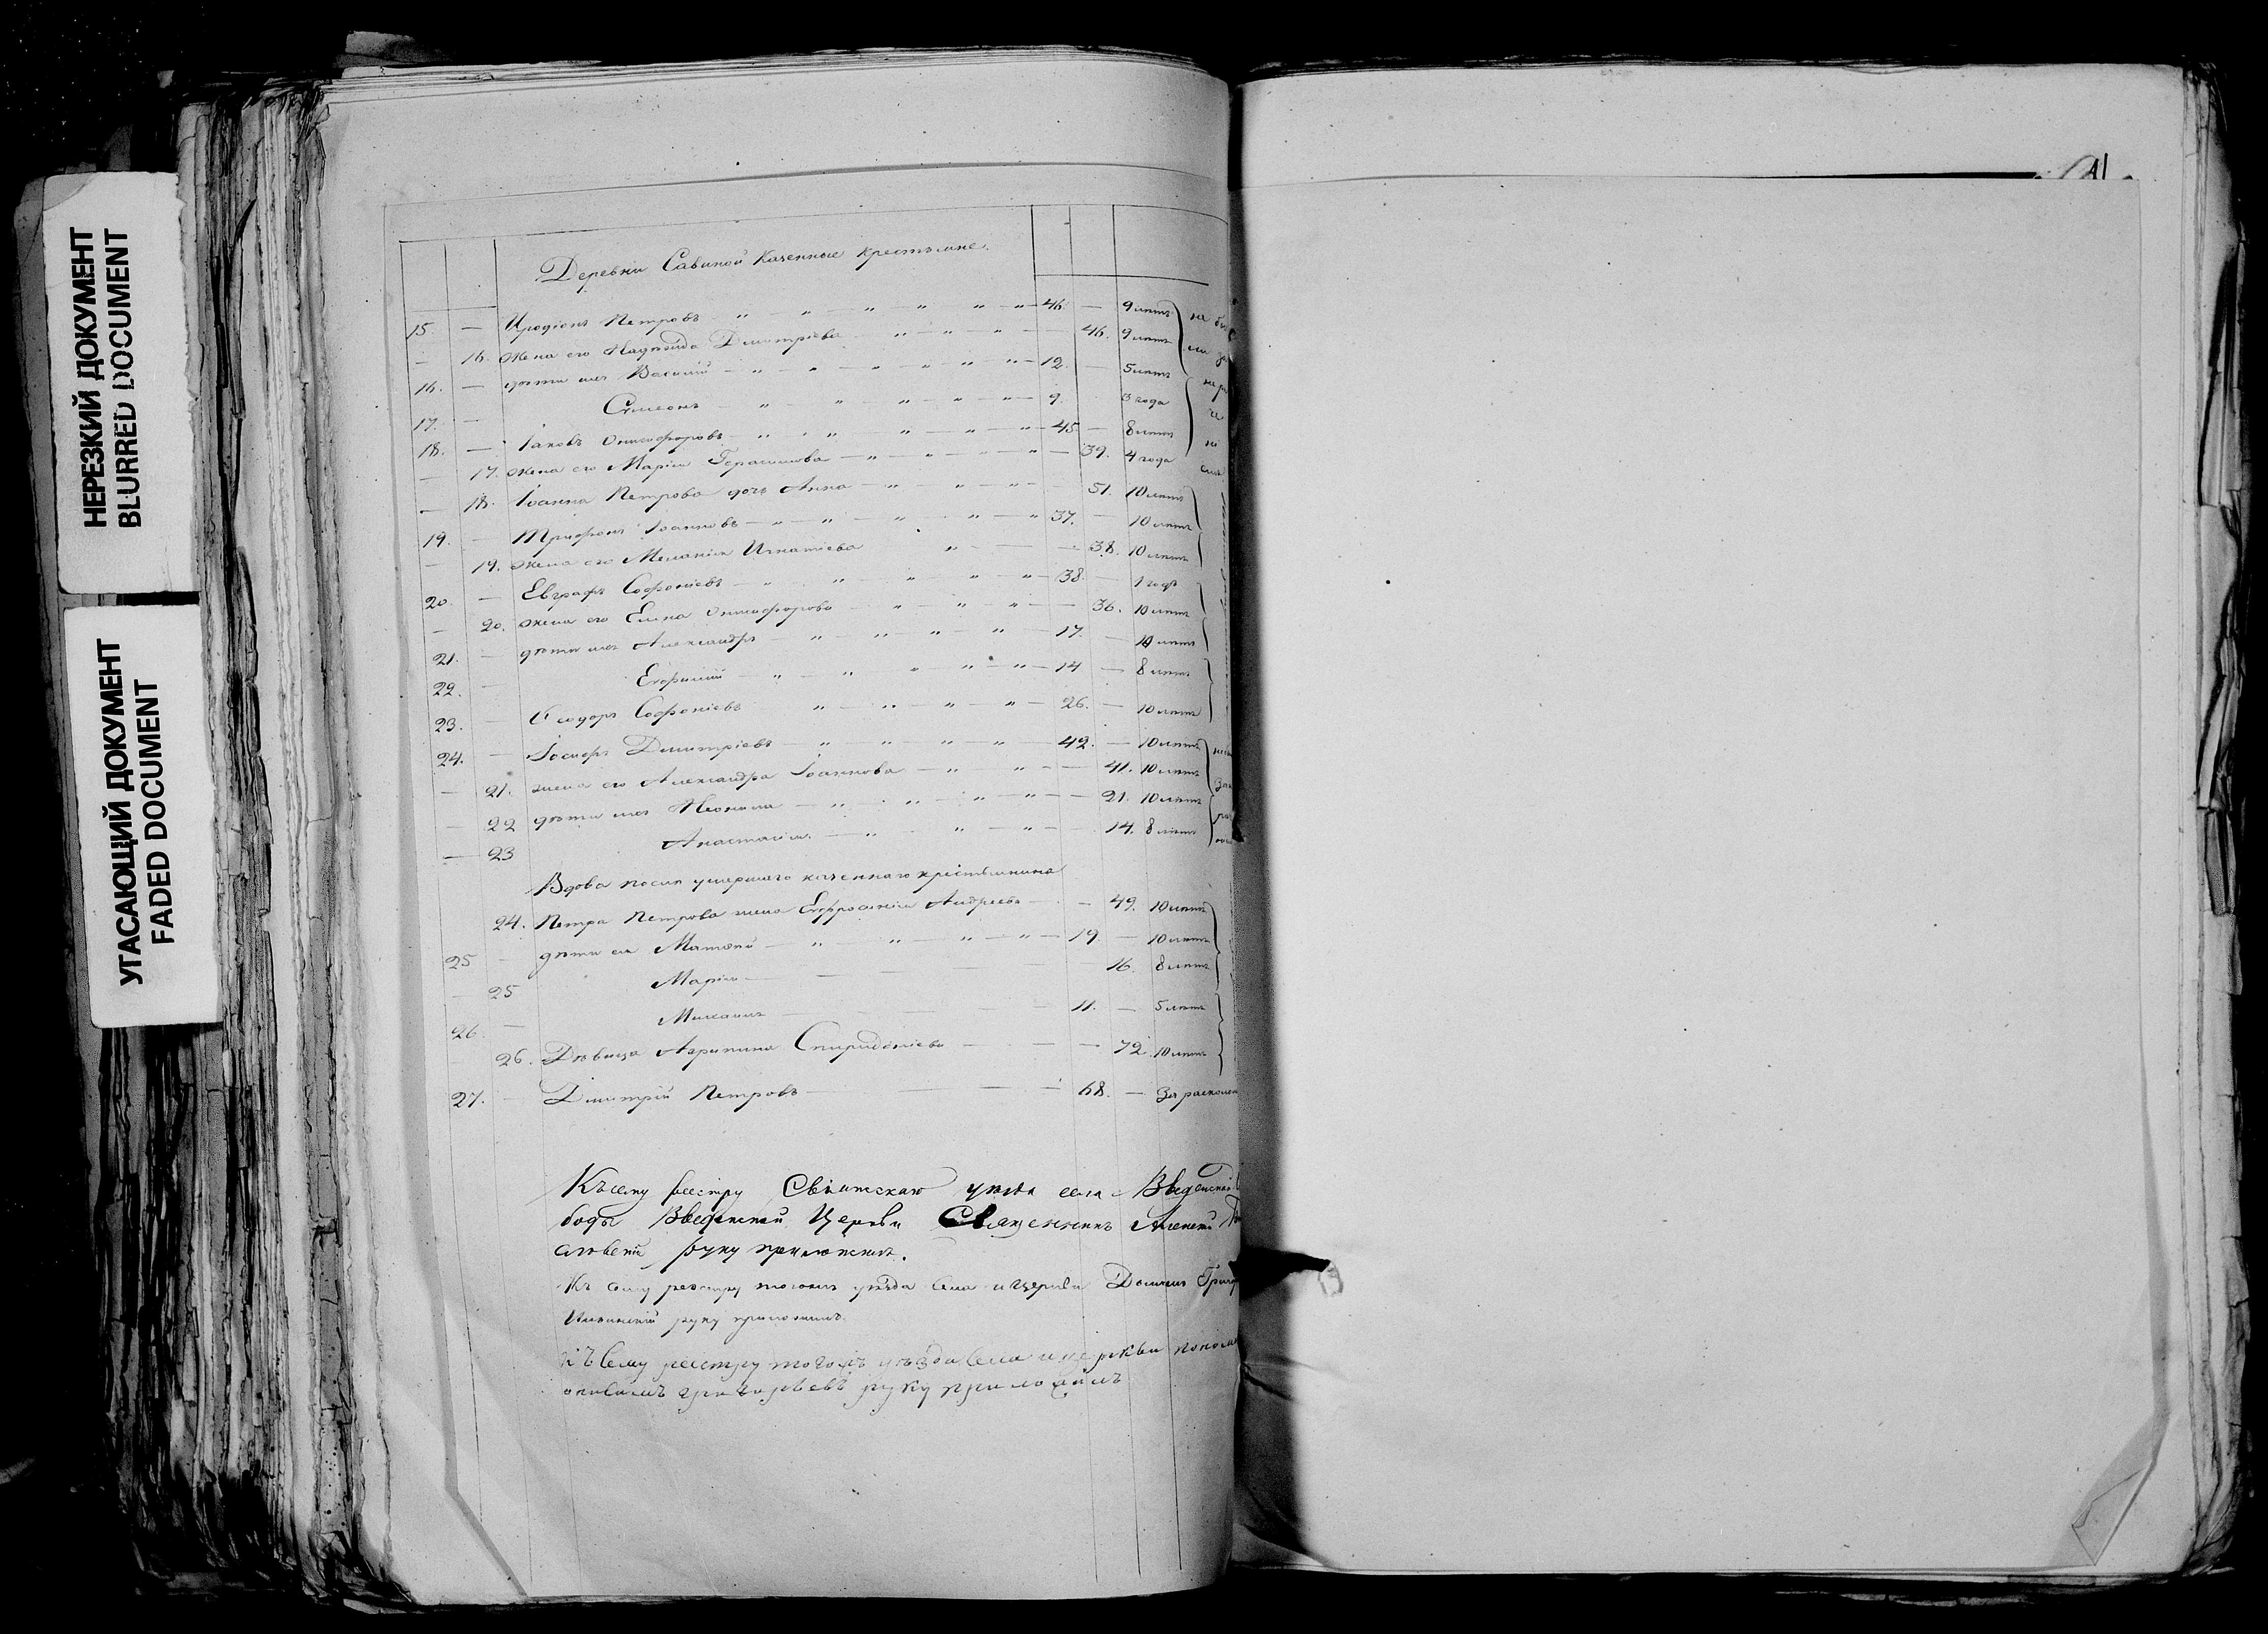 НЕРЕЗКИЙ ДОКУМЕНТ
BLURRED DOCUMENT
УГАСАЮЩИЙ ДОКУМЕНТ
FADED DOCUMENT
Деревни Савиной Казенные крестьяне.
15. — Иродіонъ Петровъ — " — " — " — " — " — 46. — 9 лѣтъ
— 16. Жена его Надежда Димитріева — " — " — " — 46. 9 лѣтъ
16. — дѣти ихъ Василій — " — " — " — " — " — 12. — 5 лѣтъ
17. — Симеонъ — " — " — " — " — " — 9. 3 года
18. — Іаковъ Онисифоровъ — " — " — " — " — 45 — 8 лѣтъ
— 17. жена его Марія Герасимова — " — " — " — " — 39. 4 года
— 18. Іоанна Петрова дочь Анна — " — " — " — " — 51. 10 лѣтъ
19. — Трифонъ Іоанновъ — " — " — " — " — " 37. — 10 лѣтъ
— 19. жена его Меланія Игнатіева " — — 38. 10 лѣтъ
20. — Евграфъ Софоніевъ — " — " — " — " — " — 38. — 1 годъ
— 20. жена его Елена Онисифорова — " — " — " — 36. 10 лѣтъ
21. — дѣти ихъ Александръ — " — " — " — " — 17. — 10 лѣтъ
22. — Ефимій — " — " — " — " — " — 14 — 8 лѣтъ
23. Ѳеодоръ Софоніевъ " — " — " — " — 26. — 10 лѣтъ
24. — Іосифъ Димитріевъ — " — " — " — " — 42. — 10 лѣтъ
— 21. жена его Александра Іоаннова — " — " — 41. 10 лѣтъ
— 22 дѣти ихъ Неонила — " — " — " — " — 21. 10 лѣтъ
— 23 Анастасія — " — " — " — 14. 8 лѣтъ
Вдова послѣ умершаго казеннаго крестьянина
24. Петра Петрова жена Евфросинія Андреева — — 49. 10 лѣтъ
25 — дѣти ея Матѳей — " — " — " — " — 19 — 10 лѣтъ
— 25 Марія — 16. 8 лѣтъ
26. — Михаилъ — 11. — 5 лѣтъ
26. Дѣвица Агрипина Спиридоніева — 72. 10 лѣтъ
27. — Димитрій Петровъ — 68. — За раскол
Къ сему реестру уѣзда села Введенской
боды Введенской Церкви Священникъ Алексѣй
руку приложилъ.
Къ сему реестру тогожъ уѣзда села и церкви
руку приложилъ
Къ сему реестру тогожъ уѣзда села и церкви
григорьевъ руку приложилъ